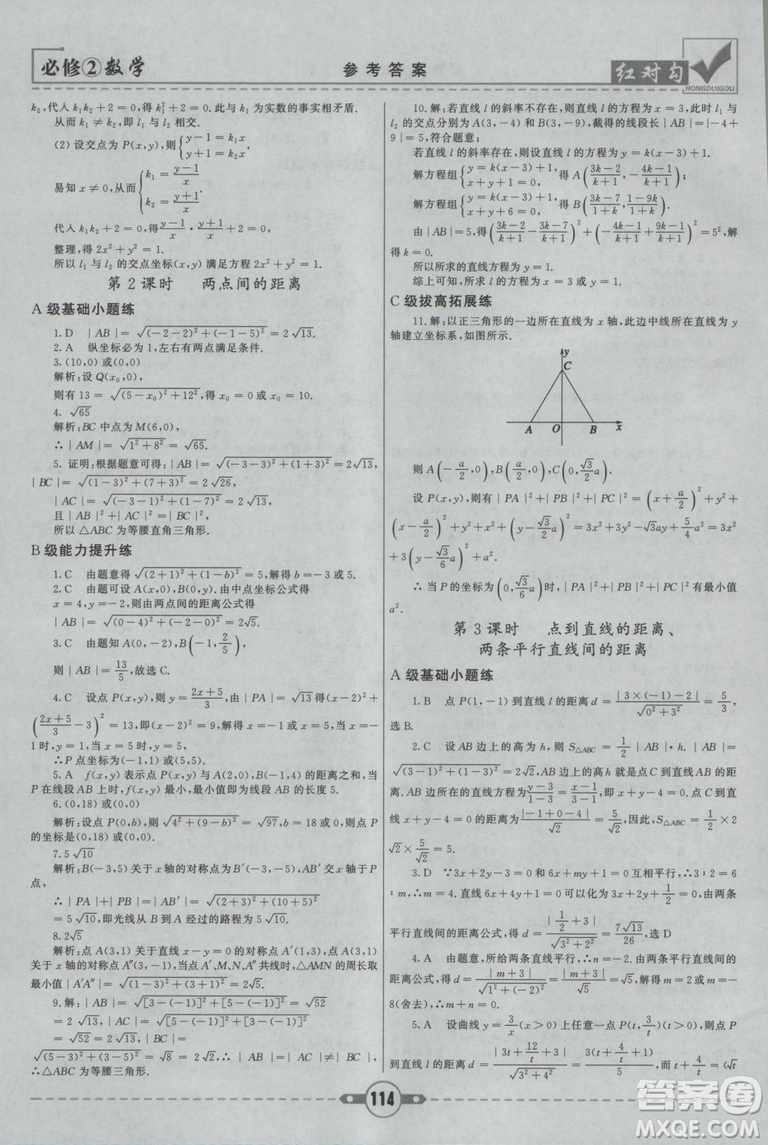 必修②数学
参考答案
红对勾
HONGDUIGOU
k₂,代入 k₁k₂+2=0,得 k₁²+2=0. 此与 k₁ 为实数的事实相矛盾.
从而 k₁≠k₂,即 l₁ 与 l₂ 相交.
(2) 设交点为 P(x,y),则{y-1=k₁x
y+1=k₂x,
易知 x≠0,从而{k₁=(y-1)/x
k₂=(y+1)/x.
代入 k₁k₂+2=0,得 (y-1)/x · (y+1)/x +2=0,
整理,得 2x²+y²=1.
所以 l₁ 与 l₂ 的交点坐标(x,y)满足方程 2x²+y²=1.
第 2 课时 两点间的距离
A 级基础小题练
1. D |AB|=√((-2-2)²+(-1-1)²)=2√5.
2. A 纵坐标必为 1,左右有两点满足条件.
3. (10,0)或(0,0)
解析:设 Q(x₀,0)
则有 13=√((5-x₀)²+12²),得 x₀=0 或 x₀=10.
4. √65
解析:BC 中点为 M(6,0),
∴|AM|=√(1²+8²)=√65.
5. 证明:根据题意可得:|AB|=√((-3-3)²+(1+3)²)=2√13,
|BC|=√((-3-1)²+(7+3)²)=2
|AC|=√((-3-1)²+(1-7)²)=2√13,
且|AB|²+|AC|²=|BC|²,
所以△ABC 为等腰直角三角形.
B 级能力提升练
1. C 由题意得√((2+1)²+(1-b)²)=5,解得:b=-3 或 5.
2. C 由题可设 A(x,0),B(0,y). 由中点坐标公式得
x=4,y=-2,则由两点间的距离公式得
|AB|=√((0-4)²+(-2-0)²)=2√5.
3. C 由题知 A(0,-2),B(-1,2/5)
则|AB|=13/5,故选 C.
4. C 设点 P(x,y),则 y=(2x+5)/3,由|PA|=√13 得(x-2)²+
((2x+5)/3-3)²=13,即(x-2)²=9,解得 x=-1 或 x=5,当 x=-
1 时,y=1,当 x=5 时,y=5,
∴P 点坐标为(-1,1)或(5,5).
5. A f(x,y)表示点 P(x,y)与 A(2,0),B(-3,4)的距离之和,当
P 在线段 AB 上时,f(x,y)最小,即最小值为线段 AB 的长度 5
6. (0,18)或(0,0)
解析:设点 P(0,b),则√(4²+(9-b)²)=√97,b=18 或 0,则点 P
的坐标为(0,18)或(0,0).
7. 5√10
解析:B(-3,5)关于 x 轴的对称点为 B′(-3,-5),AB′交 x 轴于 P
点,
∴|PA|+|PB|=|AB′|=√((2+3)²+(10+5)²)
=5√10,即光线从 B 到 A 经过的路程为 5√10
8. 2√5
解析:点 A(3,1)关于直线 x-y=0 的对称点 A′(1,3),点 A(3,1)
关于 x 轴的对称点 A″(3,-1),A′、M、N、A″共线时,△AMN 的周长取
最小值|A′A″|=√((1-3)²+(3+1)²)=2√5.
9. 解:|AB|=√([3-(-1)]²+[-8-(-2)]²)=√52
=2√13,|AC|=√([5-(-1)]²+[-6-(-2)]²)
=√52=2√13,|BC|=
√((5-3)²+(-6+8)²)=√8=2√2,∴|AB|=|AC|≠|BC|.
∴△ABC 为等腰三角形.
10. 解:若直线 l 的斜率不存在,则直线 l 的方程为 x=3,此时 l₁ 与
l₂ 的交点分别为 A(3,-4)和 B(3,-9),截得的线段|AB|=|-4+
9|=5,符合题意;
若直线 l 的斜率存在,则设直线 l 的方程为 y=k(x-3)+1,
解方程组{y=k(x-3)+1,
x+y+1=0,
得 A((3k-2)/(k+1),(-4k+1)/(k+1)),
解方程组{y=k(x-3)+1,
x+y+6=0,
得 B((3k-7)/(1+k),(1-9k)/(1+k)).
由|AB|=5,得((3k-2)/(k+1)-(3k-7)/(k+1))²+((-4k+1)/(k+1)+(9k-1)/(k+1))²=5²,解得 k=0.
所以所求的直线方程为 y=1.
综上可知,所求 l 的方程为 x=3 或 y=1.
C 级拔高拓展练
11. 解:以正三角形的一边所在直线为 x 轴,此边中线所在直线为 y
轴建立坐标系,如图所示.
y
C
A
O
B
x
则 A(-a/2,0),B(a/2,0),C(0,√3/2 a)
设 P(x,y),则有|PA|²+|PB|²+|PC|²=(x+a/2)²+y²+
(x-a/2)²+y²+x²+(y-√3/2 a)²=3x²+3y²-√3ay+5a²/4=3x²
+3(y-√3/6 a)²+a².
∴当 P 的坐标为(0,√3/6 a)时,|PA|²+|PB|²+|PC|²有最小值
a².
第 3 课时 点到直线的距离、
两条平行直线间的距离
A 级基础小题练
1. B 点 P(1,-1)到直线 l 的距离 d=|3×(-1)-2|/√(0²+3²)=5/3,
选 B.
2. C 设 AB 边上的高为 h,则 S△ABC=1/2|AB|·h. |AB|=
√((3-1)²+(1-3)²)=2√2,AB 边上的高 h 就是点 C 到直线 AB 的距
离. AB 边所在的直线方程为(y-3)/(1-3)=(x-1)/(3-1),即 x+y-4=0. 点 C 到直线
x+y-4=0 的距离为|-1+0-4|/√2=5/√2,因此,S△ABC=1/2×2
√2×5/√2=5.
3. D ∵3x+2y-3=0 和 6x+my+1=0 互相平行,∴3∶2=6
∶m,∴m=4. 直线 6x+4y+1=0 可以转化为 3x+2y+1/2=0,由两条
平行直线间的距离公式,得 d=|1/2+3|/√(3²+2²)=7√13/26,选 D
4. A 由题意,所给两条直线平行,∴n=-2. 由两条平行直线间的
距离公式,得 d=|m+3|/√(1²+(-2)²)=|m+3|/√5=√5,解得 m=2 或 m=-
8(舍去),∴m+n=0.
5. A 设曲线 y=3/x(x>0)上任意一点 P(t,3/t)(t>0),则点 P
到直线 l 的距离 d=|3t+4·3/t+3|/√(3²+4²)=3(t+4/t+1)/5=3/5(√t
114
答案卷
MXQE.COM